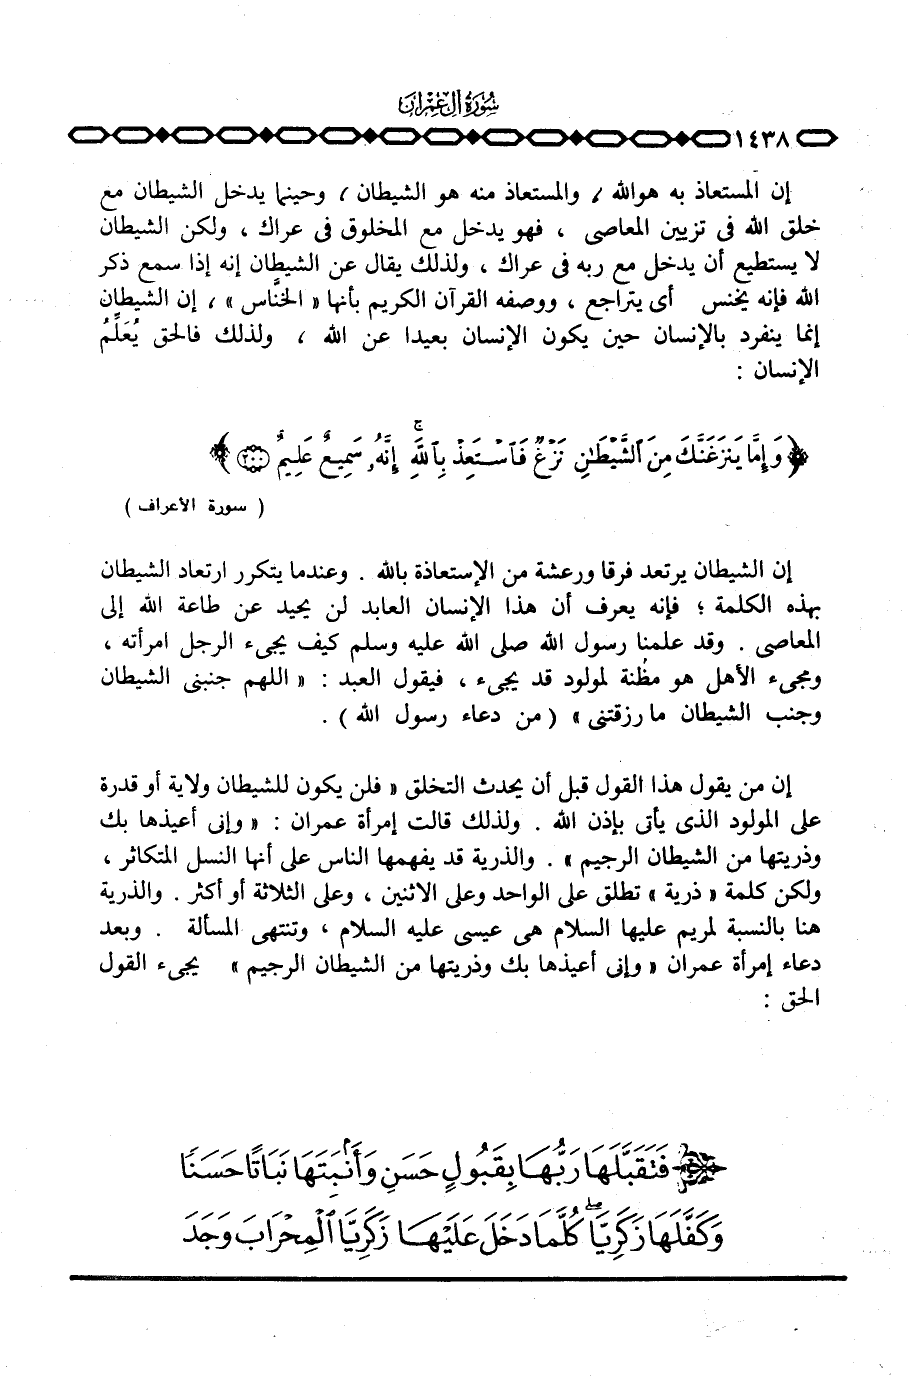 سورة آل عمران
١٤٣٨
إن المستعاذ به هوالله ، والمستعاذ منه هو الشيطان ، وحينما يدخل الشيطان مع
خلق الله فى تزيين المعاصى ، فهو يدخل مع المخلوق فى عراك ، ولكن الشيطان
لا يستطيع أن يدخل مع ربه فى عراك ، ولذلك يقال عن الشيطان إنه إذا سمع ذكر
الله فإنه يخنس أى يتراجع ، ووصفه القرآن الكريم بأنها « الخنَّاس » ، إن الشيطان
إنما ينفرد بالإنسان حين يكون الإنسان بعيدا عن الله ، ولذلك فالحق يُعَلِّمُ
الإنسان :
﴿ وَإِمَّا يَنزَغَنَّكَ مِنَ ٱلشَّيْطَٰنِ نَزْغٌ فَٱسْتَعِذْ بِٱللَّهِ ۚ إِنَّهُۥ سَمِيعٌ عَلِيمٌ ٢٠٠ ﴾
( سورة الأعراف )
إن الشيطان يرتعد فرقا ورعشة من الإستعاذة بالله . وعندما يتكرر ارتعاد الشيطان
بهذه الكلمة ؛ فإنه يعرف أن هذا الإنسان العابد لن يحيد عن طاعة الله إلى
المعاصى . وقد علمنا رسول الله صلى الله عليه وسلم كيف يجىء الرجل امرأته ،
ومجىء الأهل هو مظُنة لمولود قد يجىء ، فيقول العبد : « اللهم جنبنى الشيطان
وجنب الشيطان ما رزقتنى » ( من دعاء رسول الله ) .
إن من يقول هذا القول قبل أن يحدث التخلق « فلن يكون للشيطان ولاية أو قدرة
على المولود الذى يأتى بإذن الله . ولذلك قالت إمرأة عمران : « وإنى أعيذها بك
وذريتها من الشيطان الرجيم » . والذرية قد يفهمها الناس على أنها النسل المتكاثر ،
ولكن كلمة « ذرية » تطلق على الواحد وعلى الاثنين ، وعلى الثلاثة أو أكثر . والذرية
هنا بالنسبة لمريم عليها السلام هى عيسى عليه السلام ، وتنتهى المسألة . وبعد
دعاء إمرأة عمران « وإنى أعيذها بك وذريتها من الشيطان الرجيم » يجىء القول
الحق :
فَتَقَبَّلَهَا رَبُّهَا بِقَبُولٍ حَسَنٍ وَأَنۢبَتَهَا نَبَاتًا حَسَنًا
وَكَفَّلَهَا زَكَرِيَّا ۖ كُلَّمَا دَخَلَ عَلَيْهَا زَكَرِيَّا ٱلْمِحْرَابَ وَجَدَ